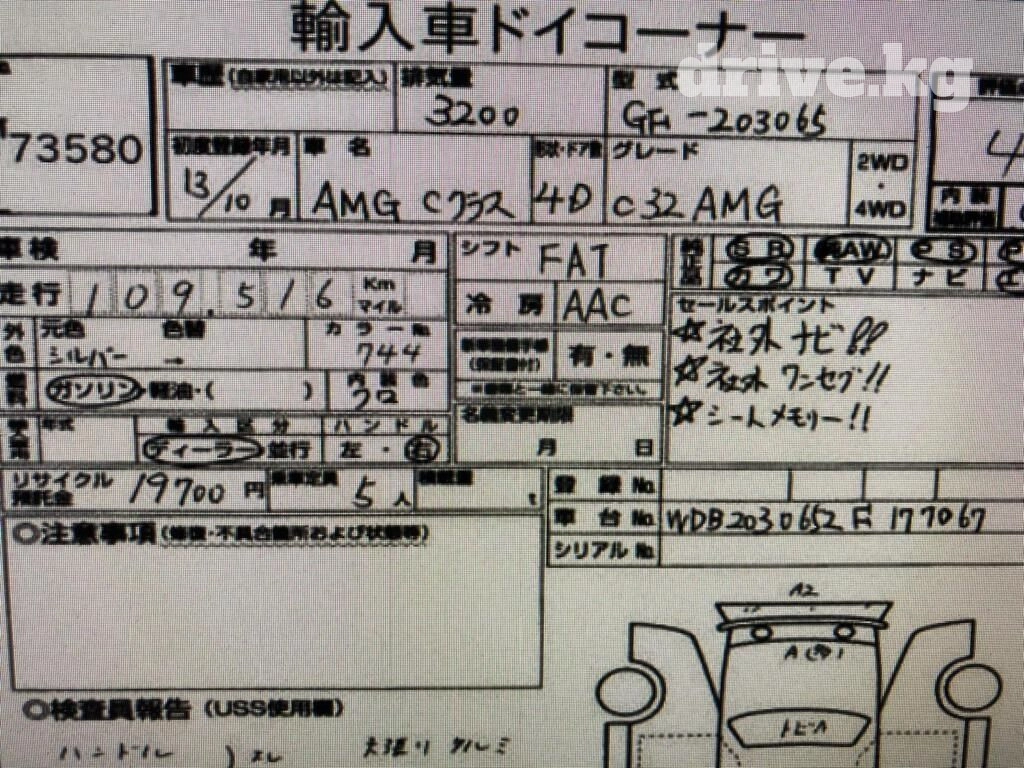 輸入車ドイコーナー
drive.kg
車歴 (自家用以外は記入) 排気量 型式
73580 3200 GF-203065 4
初度登録年月 車名 形状・ドア数 グレード 2WD・4WD 内装
13/10月 AMG Cクラス 4D C32 AMG
車検 年 月 シフト FAT SR AW PS
カワ TV ナビ
走行 109,516 Km マイル 冷房 AAC セールスポイント
外色 元色 色替 カラーNo.
シルバー → 744
☆社外ナビ!!
ガソリン・軽油・( ) 内装色 クロ 有・無
☆社外ワンセグ!!
☆シートメモリー!!
年式 輸入区分 ハンドル 名義変更期限
ディーラー・並行 左・右 月 日
リサイクル預託金 19700円 乗車定員 5人 積載量 t 登録No.
車台No. WDB2030652F177067
◎注意事項 (修復・不具合箇所および状態等) シリアルNo.
A2
◎検査員報告 (USS使用欄)
ハンドル スレ 天張り
トビA